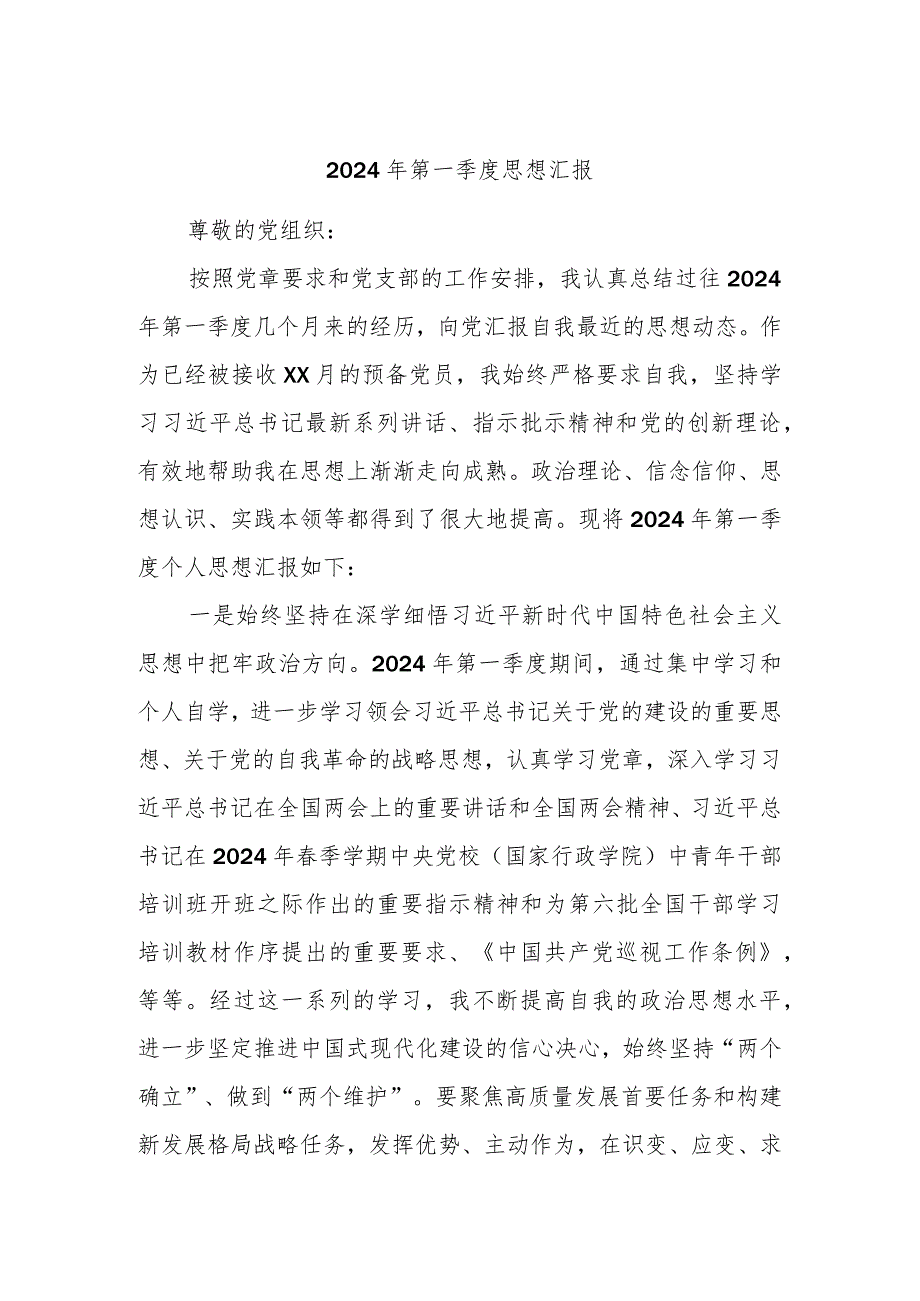 2024 年第一季度思想汇报
尊敬的党组织：
按照党章要求和党支部的工作安排，我认真总结过往 2024
年第一季度几个月来的经历，向党汇报自我最近的思想动态。作
为已经被接收 XX 月的预备党员，我始终严格要求自我，坚持学
习习近平总书记最新系列讲话、指示批示精神和党的创新理论，
有效地帮助我在思想上渐渐走向成熟。政治理论、信念信仰、思
想认识、实践本领等都得到了很大地提高。现将 2024 年第一季
度个人思想汇报如下：
一是始终坚持在深学细悟习近平新时代中国特色社会主义
思想中把牢政治方向。2024 年第一季度期间，通过集中学习和
个人自学，进一步学习领会习近平总书记关于党的建设的重要思
想、关于党的自我革命的战略思想，认真学习党章，深入学习习
近平总书记在全国两会上的重要讲话和全国两会精神、习近平总
书记在 2024 年春季学期中央党校（国家行政学院）中青年干部
培训班开班之际作出的重要指示精神和为第六批全国干部学习
培训教材作序提出的重要要求、《中国共产党巡视工作条例》，
等等。经过这一系列的学习，我不断提高自我的政治思想水平，
进一步坚定推进中国式现代化建设的信心决心，始终坚持“两个
确立”、做到“两个维护”。要聚焦高质量发展首要任务和构建
新发展格局战略任务，发挥优势、主动作为，在识变、应变、求